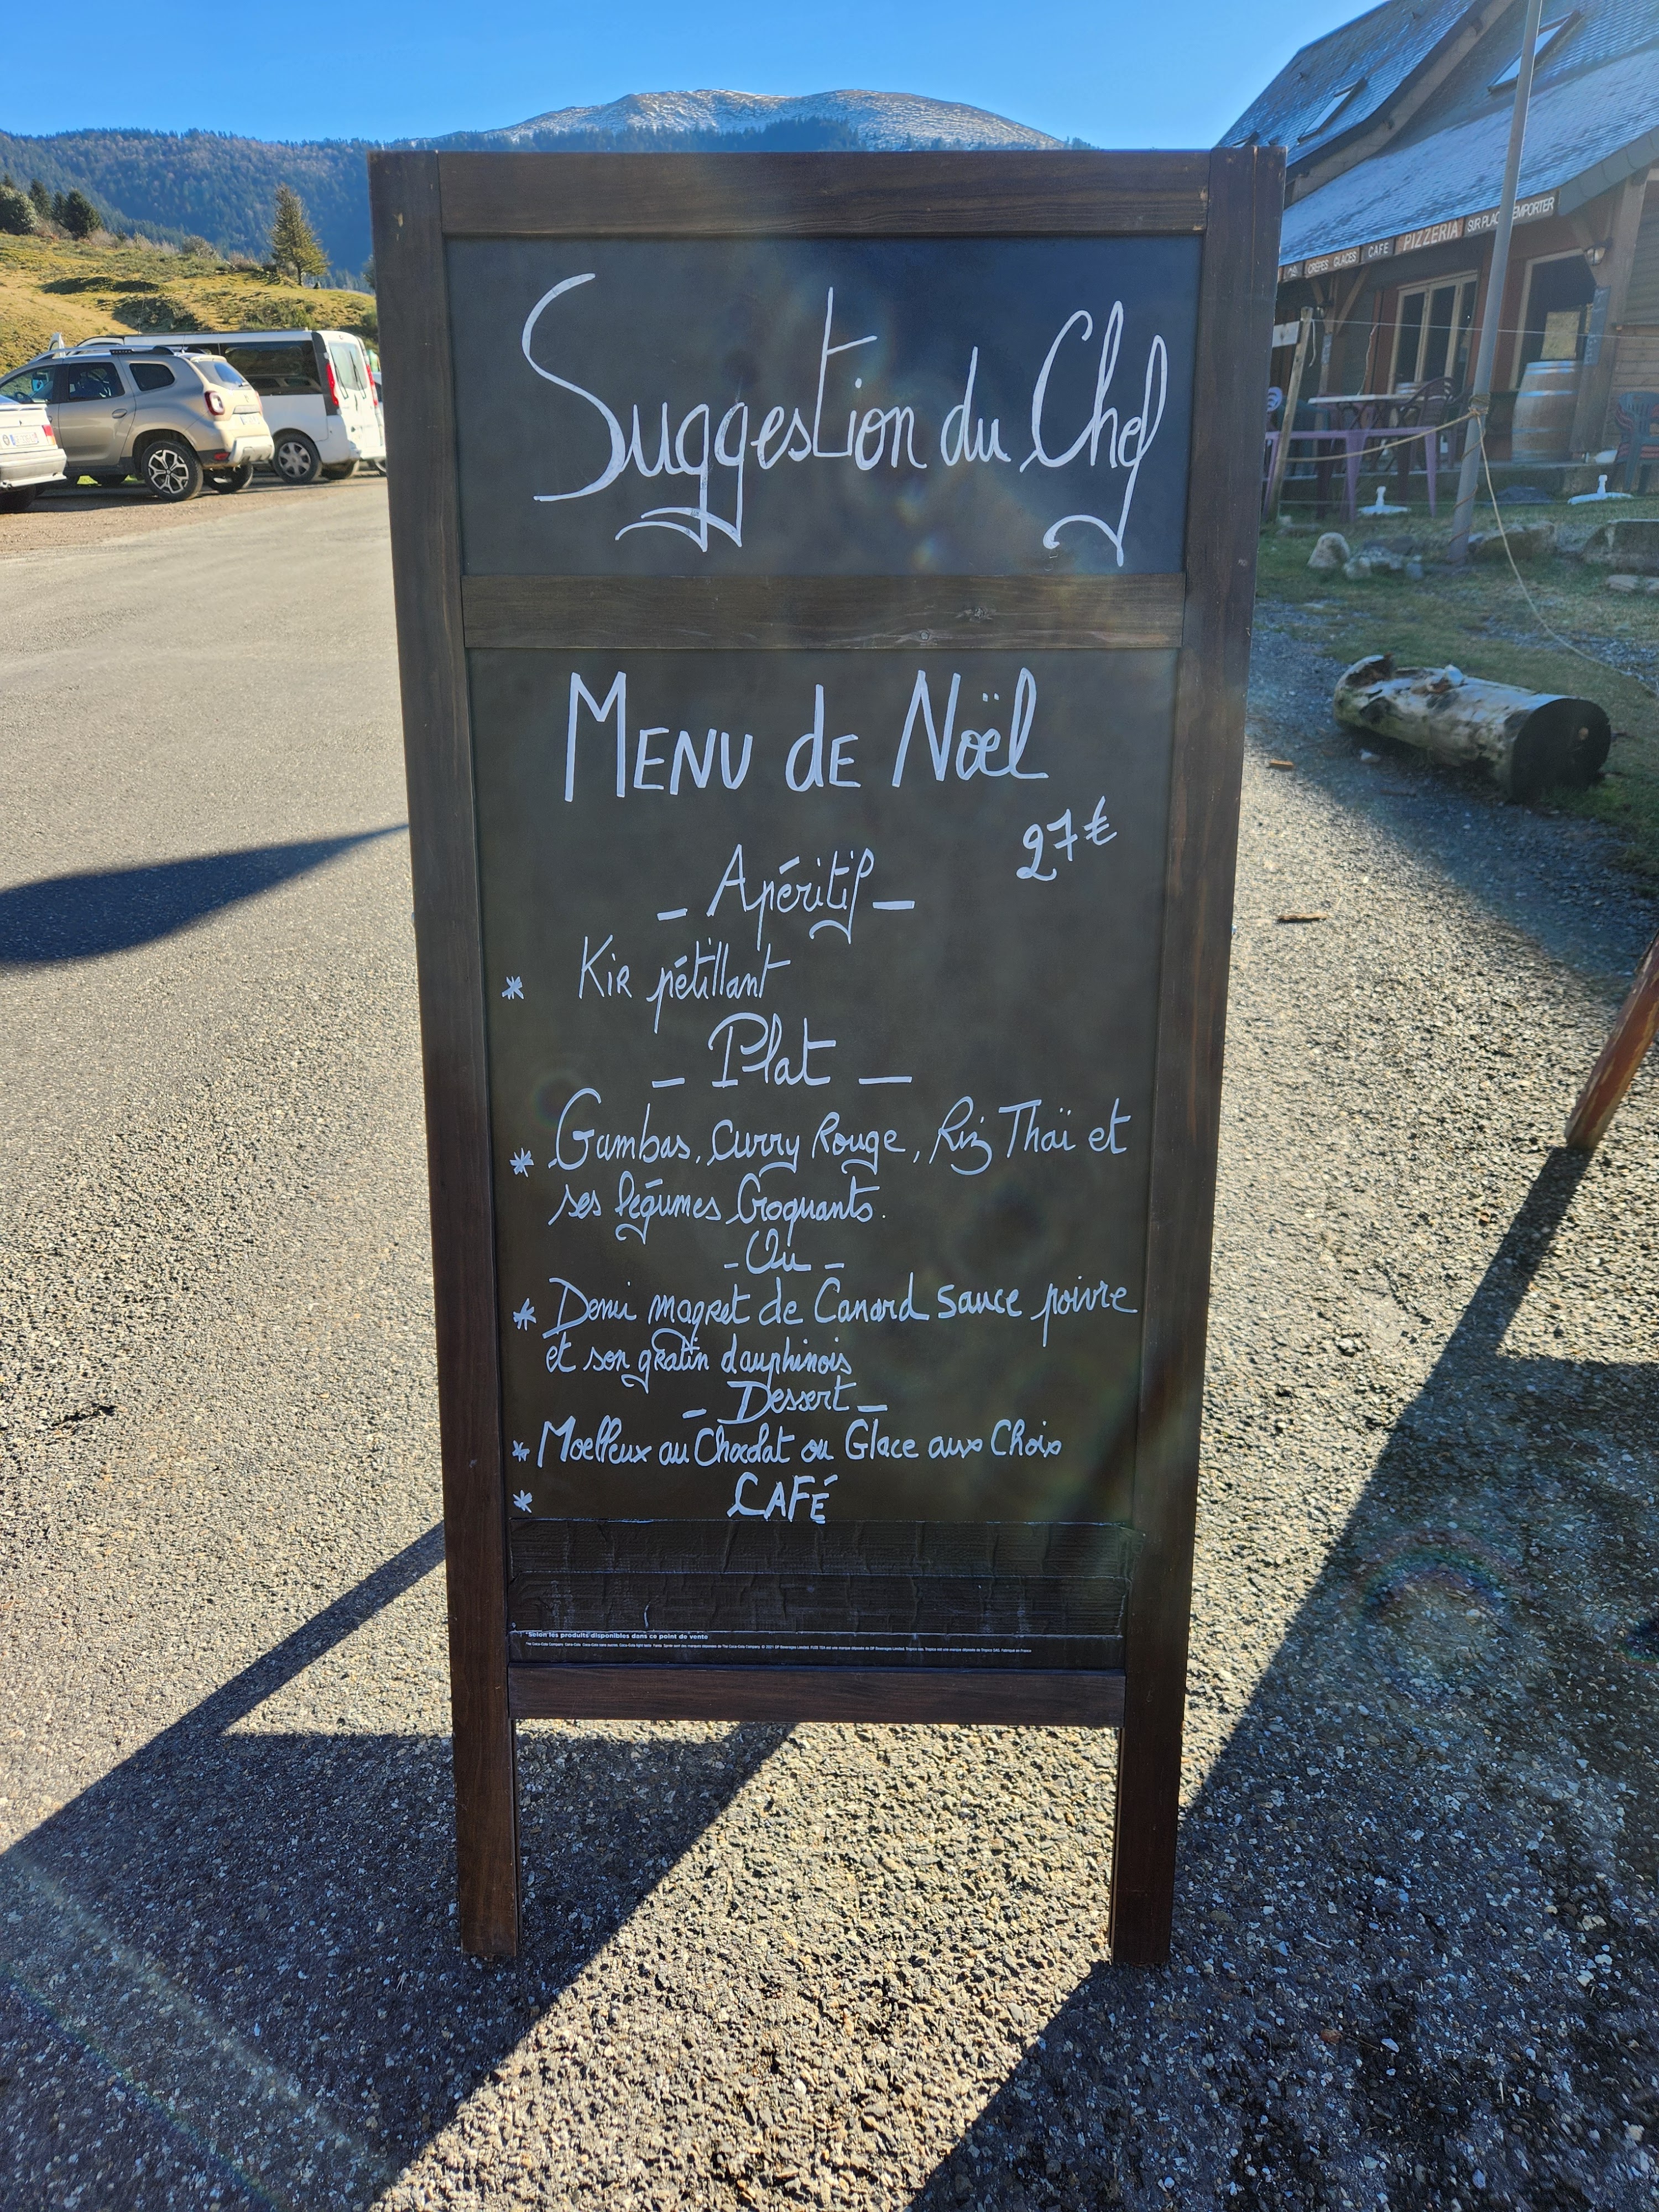 Suggestion du Chef
MENU dE Noël
27€
_ Apéritif _
* KiR pétillant
_ Plat _
* Gambas, Curry Rouge, Riz Thaï et
ses légumes Croquants.
- Ou -
* Demi magret de Canard sauce poivre
et son gratin dauphinois
_ Dessert _
* Moelleux au Chocolat ou Glace aux Choix
* CAFÉ
*Selon les produits disponibles dans ce point de vente
CRÊPES GLACES CAFE PIZZERIA SUR PLACE EMPORTER